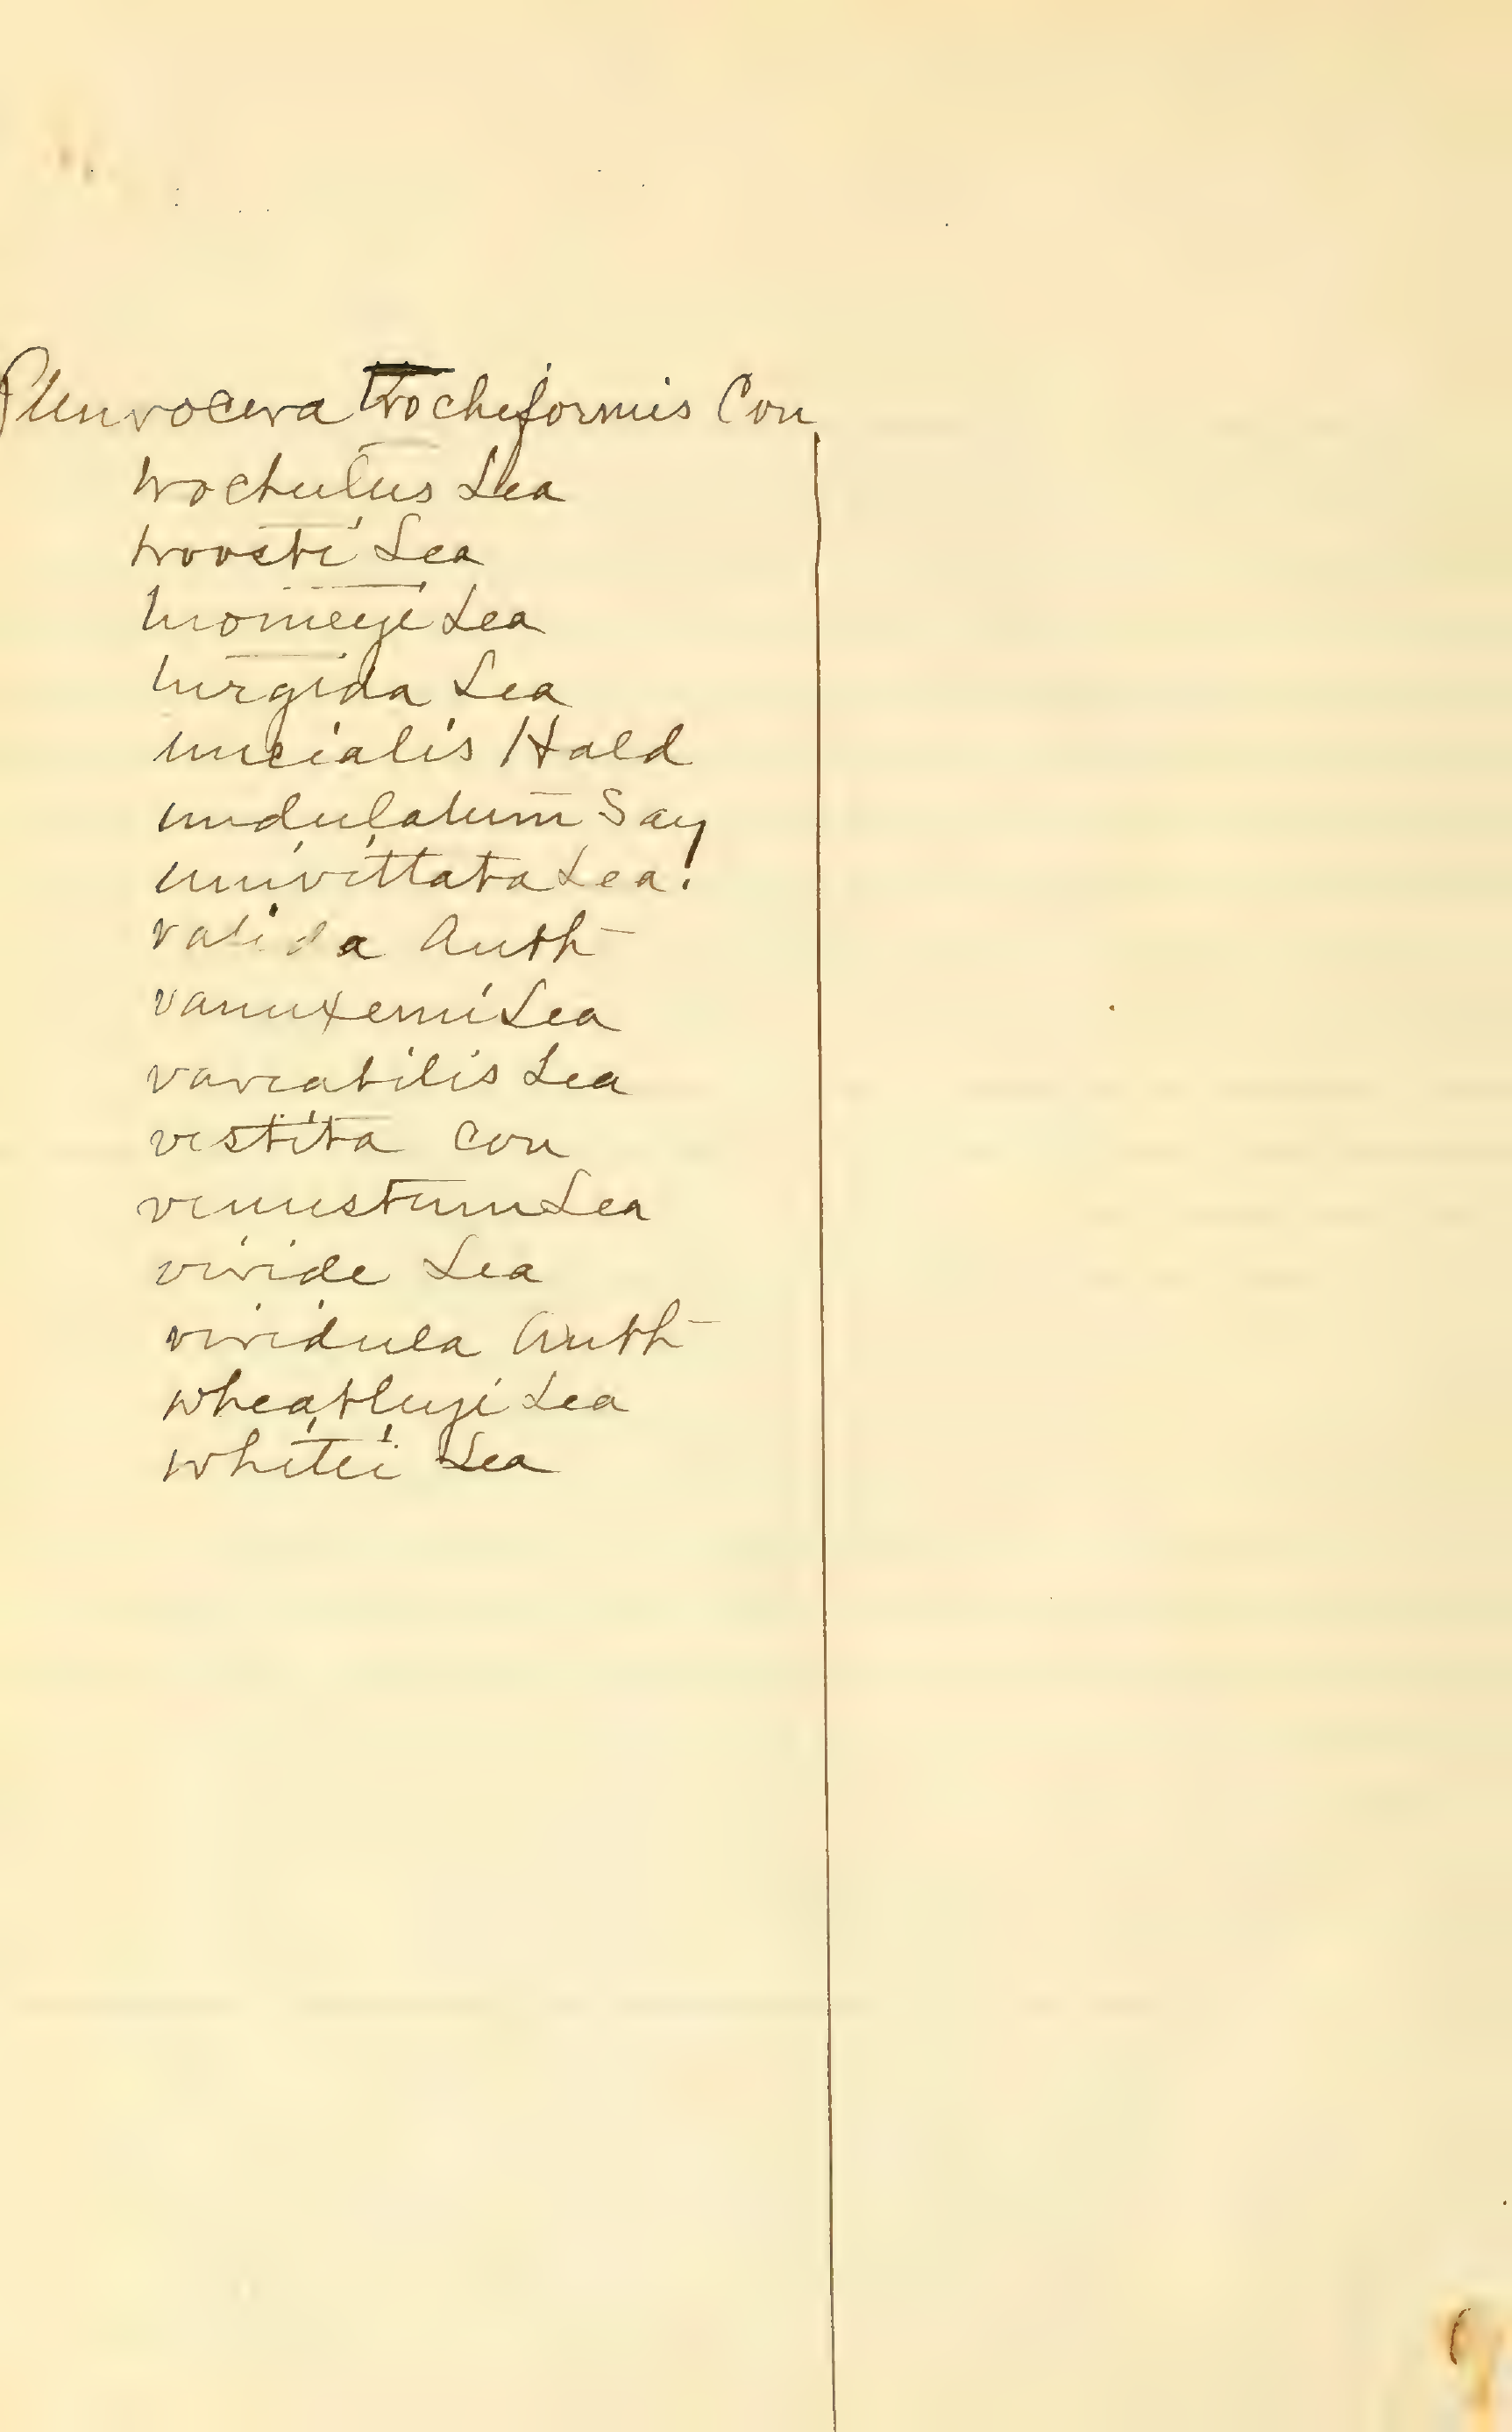 Pleurocera trocheformis Con
trochulus Lea
troosti Lea
tuomeyi Lea
turgida Lea
uncialis Hald
undulatum Say
univittata Lea.
valida Anth
vanuxemi Lea
variabilis Lea
vestita Con
venustum Lea
viride Lea
viridula Anth
wheatleyi Lea
whitei Lea